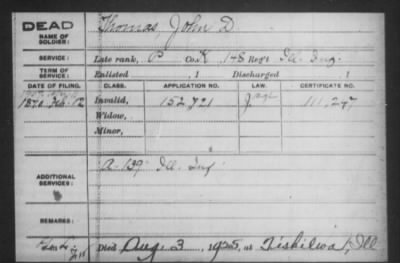 DEAD
NAME OF
SOLDIER:
Thomas, John D.
SERVICE:
Late rank, P Co. K, 148 Reg't Ill. Inf.
TERM OF
SERVICE:
Enlisted , 1 Discharged , 1
DATE OF FILING. CLASS. APPLICATION NO. LAW. CERTIFICATE NO.
1870 Feb. 12 Invalid, 152,721 111,247
Widow,
Minor,
ADDITIONAL
SERVICES:
A-139 Ill. Inf.
Died Aug. 3, 1925, at Tiskilwa, Ill